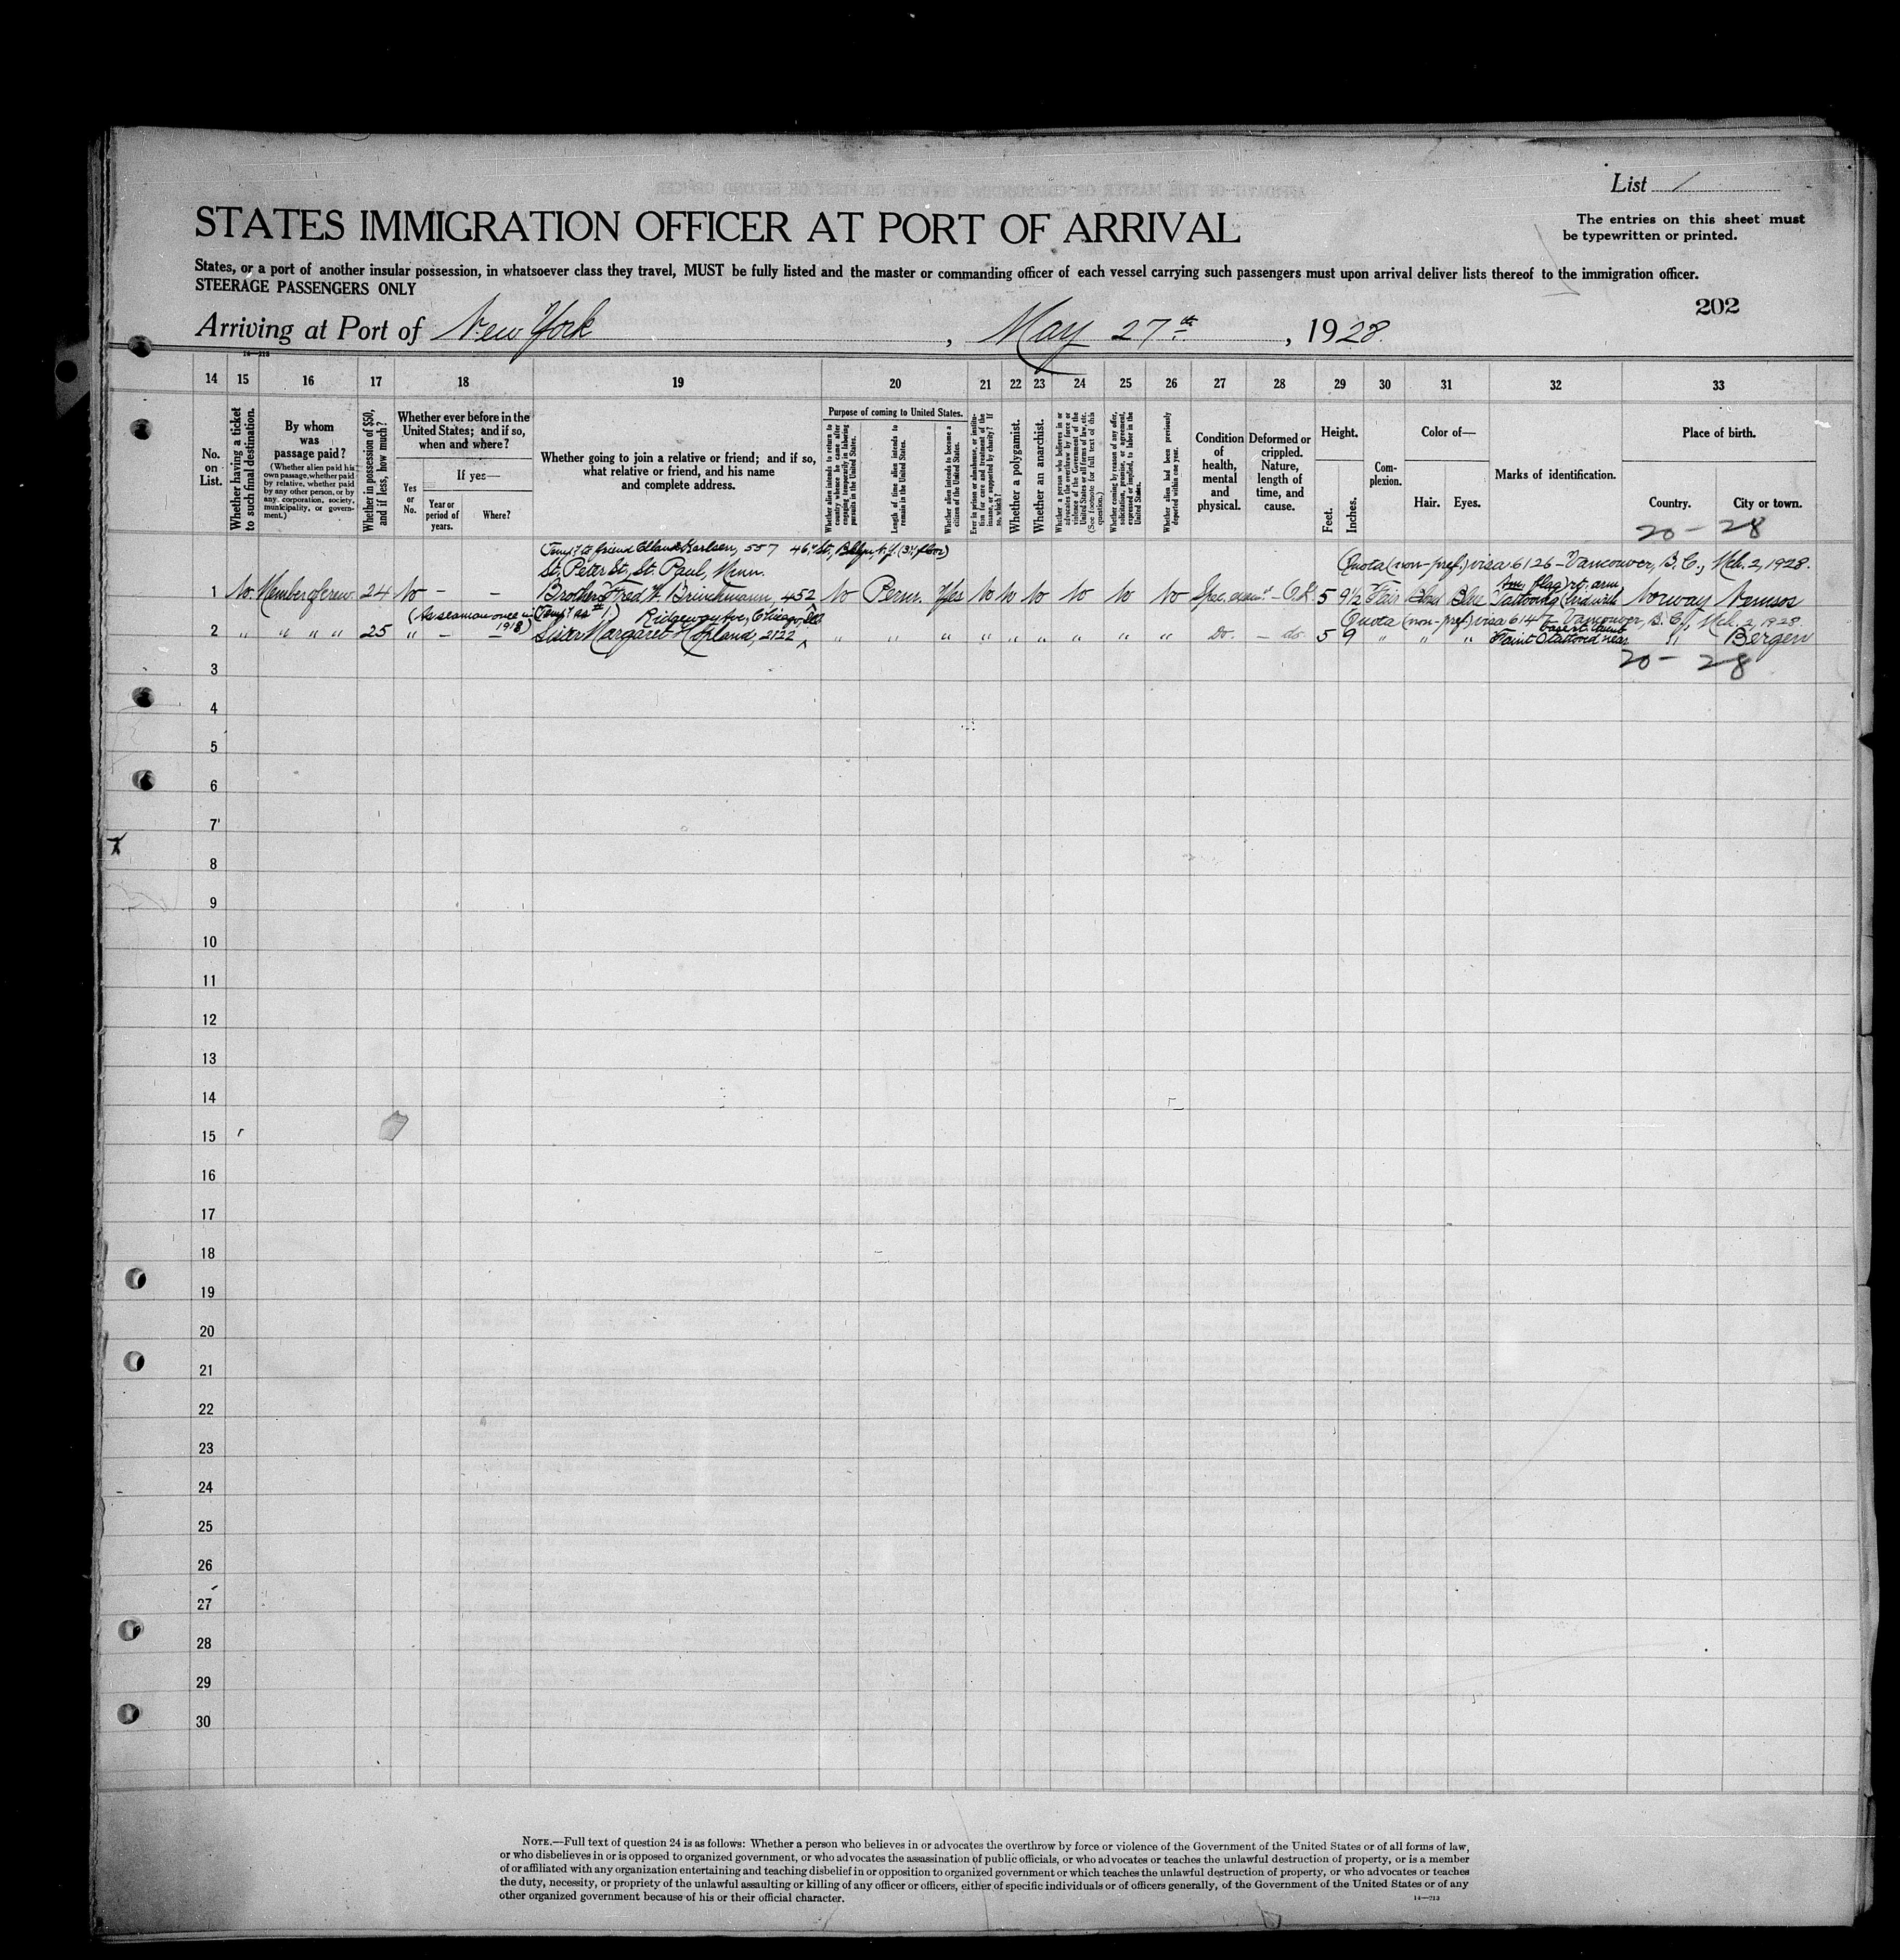 List 1
STATES IMMIGRATION OFFICER AT PORT OF ARRIVAL
The entries on this sheet must
be typewritten or printed.
States, or a port of another insular possession, in whatsoever class they travel, MUST be fully listed and the master or commanding officer of each vessel carrying such passengers must upon arrival deliver lists thereof to the immigration officer.
STEERAGE PASSENGERS ONLY
202
Arriving at Port of New York, May 27th, 1928.
14 15 16 17 18 19 20 21 22 23 24 25 26 27 28 29 30 31 32 33
No. on List.
Whether having a ticket to such final destination.
By whom was passage paid?
(Whether alien paid his own passage, whether paid by relative, whether paid by any other person, or by any corporation, society, municipality, or government.)
Whether in possession of $50, and if less, how much?
Whether ever before in the United States; and if so, when and where?
Yes or No.
If yes—
Year or period of years.
Where?
Whether going to join a relative or friend; and if so, what relative or friend, and his name and complete address.
Purpose of coming to United States.
Whether alien intends to return to country whence he came after engaging temporarily in laboring pursuits in the United States.
Length of time alien intends to remain in the United States.
Whether alien intends to become a citizen of the United States.
Ever in prison or almshouse, or institution for care and treatment of the insane, or supported by charity? If so, which?
Whether a polygamist.
Whether an anarchist.
Whether a person who believes in or advocates the overthrow by force or violence of the Government of the United States or all forms of law, etc. (See footnote for full text of this question.)
Whether coming by reason of any offer, solicitation, promise, or agreement, expressed or implied, to labor in the United States.
Whether alien had been previously deported within one year.
Condition of health, mental and physical.
Deformed or crippled. Nature, length of time, and cause.
Height.
Feet.
Inches.
Complexion.
Color of—
Hair. Eyes.
Marks of identification.
Place of birth.
Country. City or town.
20 - 28
Temp'y to friend Karlsen, 557 46th St, Bklyn, N.Y. (3rd floor)
St. Peter St., St. Paul, Minn.
Quota (non-pref.) visa 6126 - Vancouver, B.C., Mch. 2, 1928.
1 No Member of crew 24 No - - Brother Fred W. Brinchmann, 452 No Perm. Yes No No No No No No Spec. exam'd - O.K. 5 9½ Fair Blond Blue Tattooing rt. arm Norway Namsos
(As seaman once in 1918) (Temp'y as #1.) Ridgeway Ave, Chicago, Ill.
Quota (non-pref.) visa 6147 - Vancouver, B.C., Mch. 2, 1928.
2 " " " " 25 " - - Sister Margaret Hopland, 2122 " " " " " " " " " Do. - do. 5 9 " " " Faint tattooed near base rt. thumb " Bergen
20 - 28
3
4
5
6
7
8
9
10
11
12
13
14
15
16
17
18
19
20
21
22
23
24
25
26
27
28
29
30
NOTE.—Full text of question 24 is as follows: Whether a person who believes in or advocates the overthrow by force or violence of the Government of the United States or of all forms of law,
or who disbelieves in or is opposed to organized government, or who advocates the assassination of public officials, or who advocates or teaches the unlawful destruction of property, or is a member
of or affiliated with any organization entertaining and teaching disbelief in or opposition to organized government or which teaches the unlawful destruction of property, or who advocates or teaches
the duty, necessity, or propriety of the unlawful assaulting or killing of any officer or officers, either of specific individuals or of officers generally, of the Government of the United States or of any
other organized government because of his or their official character.
14—713